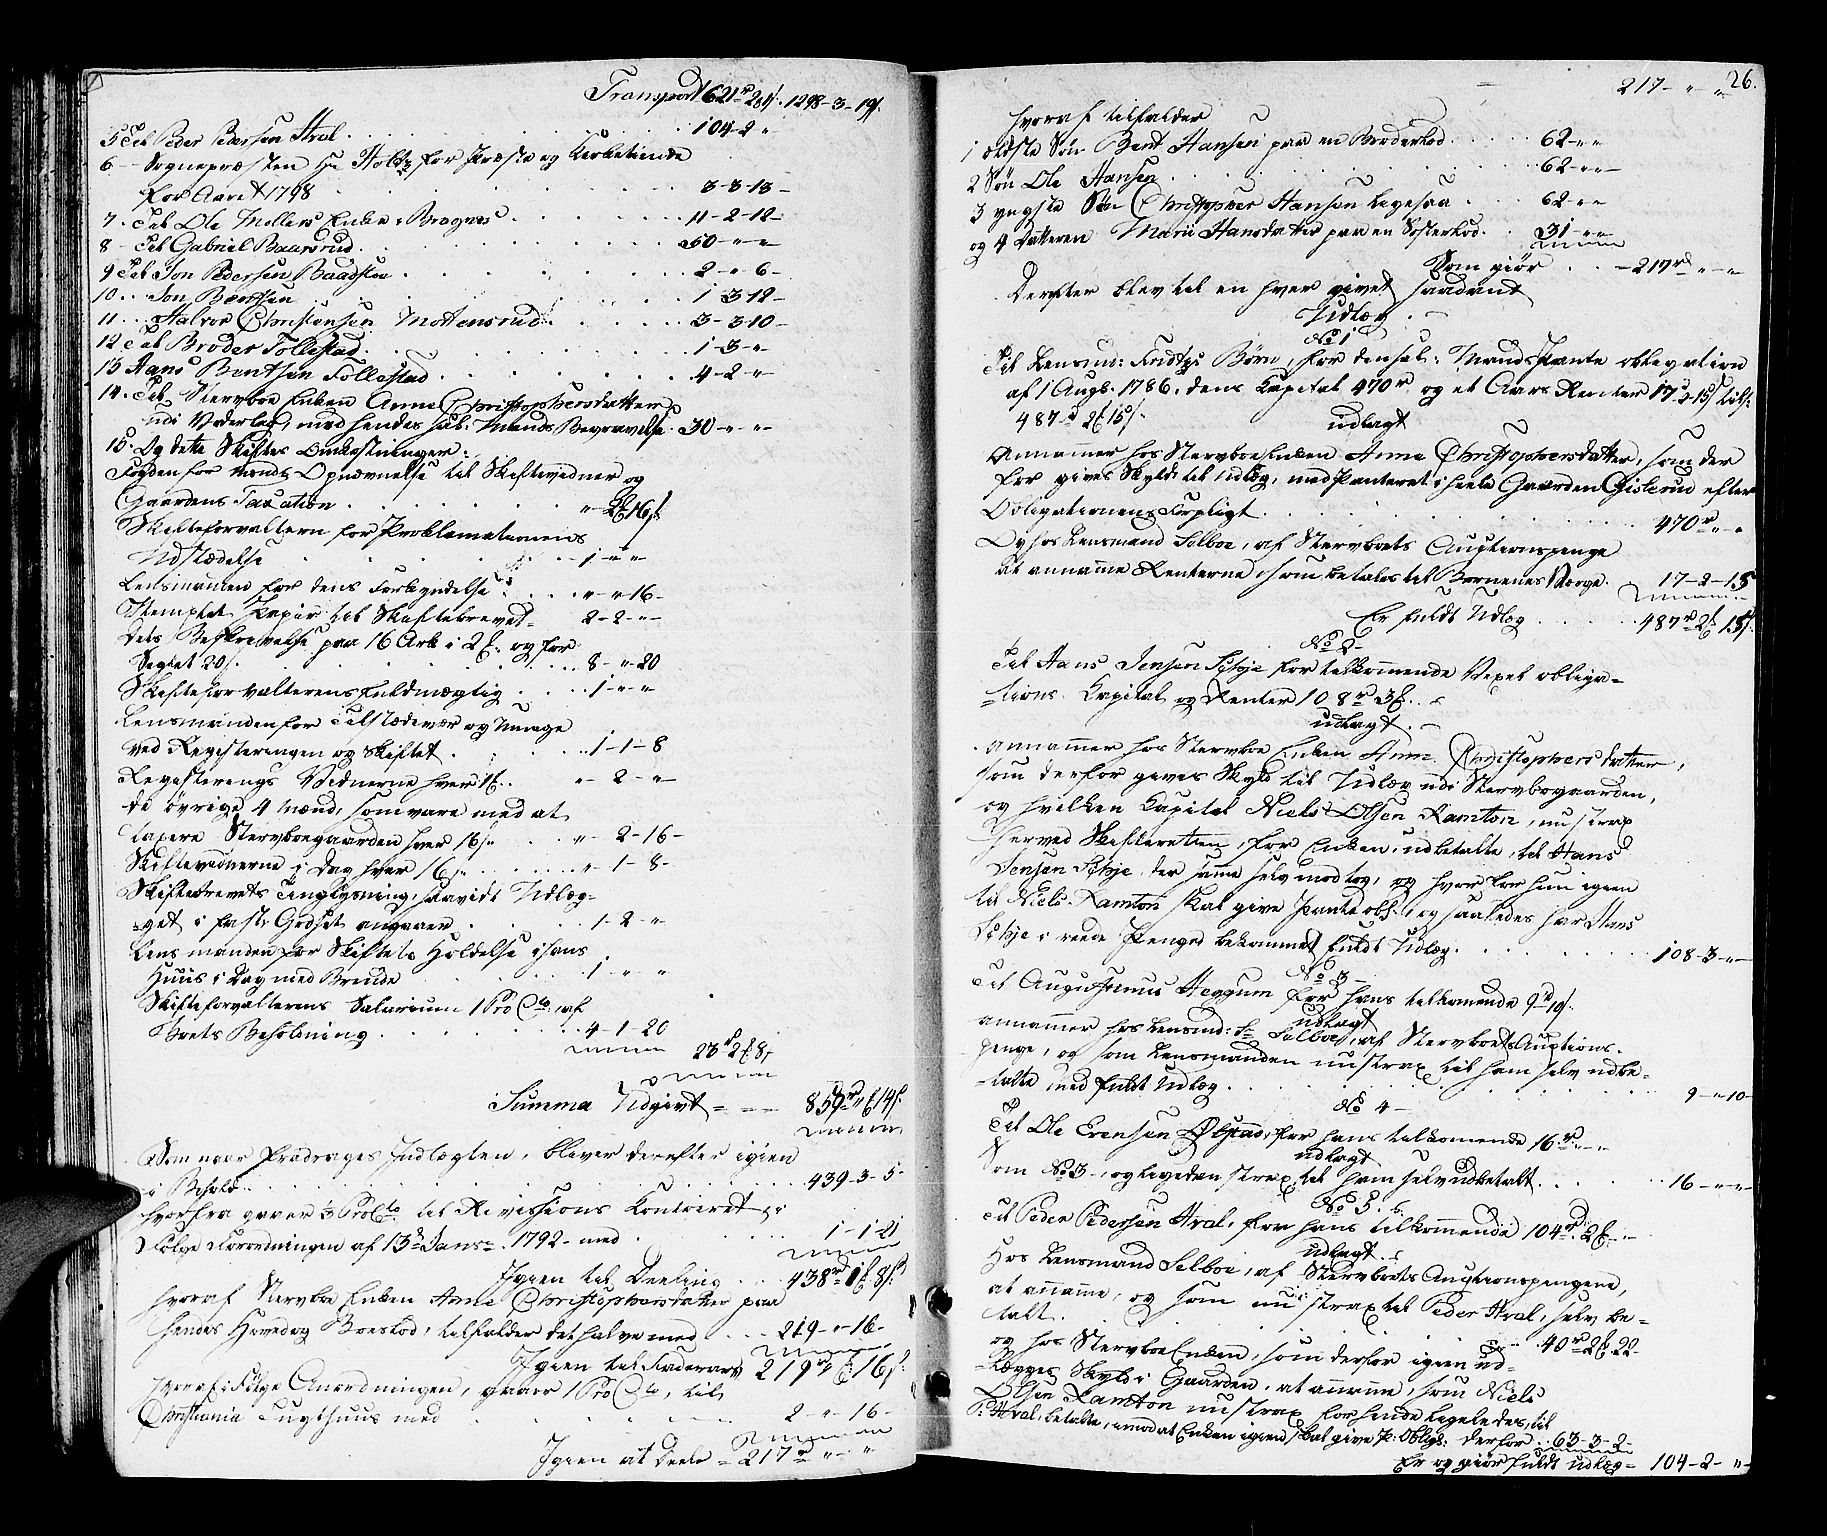 Transport 621rd 20s. 1298-3-19s.
5 Til Peder Pedersen Hval . . . 104-2-"
6 - Sognepræsten Hr Holtz for Præste og Kirketiende
for Aaret 1798 . . . 3-3-13-
7. Til Ole Møllers Enke i Bragnes . . . 11-2-12-
8 - Til Gabriel Baarsrud . . . 50-"-"
9 Til Jon Pedersen Baadstøe . . . 2-"-6-
10 . . Jon Berthsen . . . 1-3-12-
11 . . . Halvor Christensen Mottensrud . . . 3-3-10-
12 Til Broder Tollefstad . . . 1-3-"
13 Hans Bentsen Follestad . . . 4-2-"
14. Til Stervboe Enken Anne Christophersdatter
udi Vederlag, mod hendes sal: Mands Begravelse 30-"-"
15. Og dette Skiftes Omkostninger:
Fogden for Mænds Opnævnelse til Skiftevidner og
Gaardens Taxation . . . "-2-16s.
Skifteforvaltern for Proklamationens
Udstædelse . . . 1-"-"
Lensmanden for dens Forkyndelse . . . "-"-16-
Stemplet Papir til Skiftebrevet 2-2-"-
Dets Beskrivelse paa 16 Ark i 2 ., og for
Seglet 20s. . . . 8-"-20
Skifteforvalterens Fuldmægtig . . . 1-"-"
Lensmanden for Tilstædevær og Umage
ved Registeringen og Skiftet . . . 1-1-8
Registerings Vidnerne hver . . . "-2-"-
de øvrige 4 Mænd, som vare med at
taxere Stervboegaarden hver 16s. . . . "-2-16-
Skiftevidnerne i Dag hver 16s. . . . "-1-8-
Skiftebrevets Tinglysning, saavidt Udlæg-
get i faste Godset angaaer . . . 1-2-"
Lensmanden for Skiftets Holdelse i hans
Huus i Dag med Brende . . . 1-"-"
Skifteforvalterens Salarium 1 ProCto af
Boets Beholdning . . . 4-1-20
23rd 2 8s
Summa Udgivt = = = 859rd " 14s.
Som naar fradrages Indtægten, bliver derefter igien
i Behold . . . 439-3-5-
hvorfra gaaer ¼ ProCto til Revisions Contoiret
Følge Forordningen af 13de Janr. 1792- med . . . 1-1-21
Igien til Deeling . . . 438rd 1 8s.
hvoraf Stervboe Enken Anne Christophersdatter paa
hendes Hoved og Boeslod, tilfalder det halve med . . . 219-"-16-
Igien til Fædrearv 219rd " 16s.
hvoraf i Følge Anordningen, gaaer 1 ProCto, til
Christiania Tugthuus med . . . 2-"-16-
Igien at deele = 217rd "-"
217-"-" 26.
hvoraf tilfalder
1 ældste Søn Bent Hansen paa en Broderlod . . . 62-"-"
2 Søn Ole Hansen . . . 62-"-"
3 yngste Søn Christopher Hansen ligesaa . . . 62-"-"
og 4 Datteren Marii Hansdatter paa en Søsterlod . . . 31-"-"
Som giør . . . = 217rd "-"
Derefter blev til en hver givet saadant
Udlæg . -
No 1
Til Lensm: Fridtzs Børn, for den sal: Mands Pante obligation
af 1 Augs. 1786, dens Capital 470rd og et Aars Renter 17-2-15s tils:
487rd 2 15s.
udlagt
Annammer hos Stervboe Enken Anne Christophersdatter, som der
for gives Skyld til Udlæg, med Panteret i heele Gaarden Gisterud efter
Obligationens Forpligt . . . 470rd "-"
Og hos Lensmand Selboe, af Stervboets Auctionspenge
at annamme Renterne som betales til Børnenes Værge . 17-2-15
Er fuldt Udlæg . . . 487rd 2 15s.
No 2-
Til Hans Jensen Sæhje for tilkommende Vexel obliga-
tions Capital og Renter 108rd 3 . . -
udlagt . -
annammer hos Stervboe Enken Anne Christophersdatter,
som derfor gives Skyld til Udlæg udi Stervboegaarden,
og hvilken Capital Niels Olsen Ramton, nu strax
herved Skifteretten, for Enken, udbetalte, til Hans
Jensen Sæhje, der samme selv modtog, og hvorfor hun igien
til Niels Ramton skal give Pante obl:, og saaledes har Hans
Sæhje i reede Penge bekommet fuldt Udlæg . . . 108-3-"-
No 3-
Til Augustinus Heggum for hans tilkomende 9rd 10s.
udlagt
annammer hos Lensmd: Sr. Selboe, af Stervboets Auctions-
penge, og som Lensmanden nu strax til ham selv udbe-
-talte med fuldt Udlæg . . . 9-"-10-
No 4-
Til Ole Evensen Ølstad, for hans tilkomende 16rd "-"
udlagt
Som No 3-, og ligeledes strax til ham selv udbetalt . . . 16-"-"
No 5.
Til Peder Pedersen Hval, for hans tilkommende 104rd 2 -
udlagt . -
Hos Lensmand Selboe, af Stervboets Auctionspengene,
at annamme, og som nu strax til Peder Hval, selv be-
talt . . . 40rd 2 22-
og hos Stervboe Enken, som derfor igien ud-
lægges Skyld i Gaarden, at annamme, som Niels
Olsen Ramton nu strax for hende ligeledes, til
P: Hval, betalte, imod at Enken igien skal give P: Oblig: derfor . . 63-3-2-
Er og giør fuldt udlæg = 104-2-"-